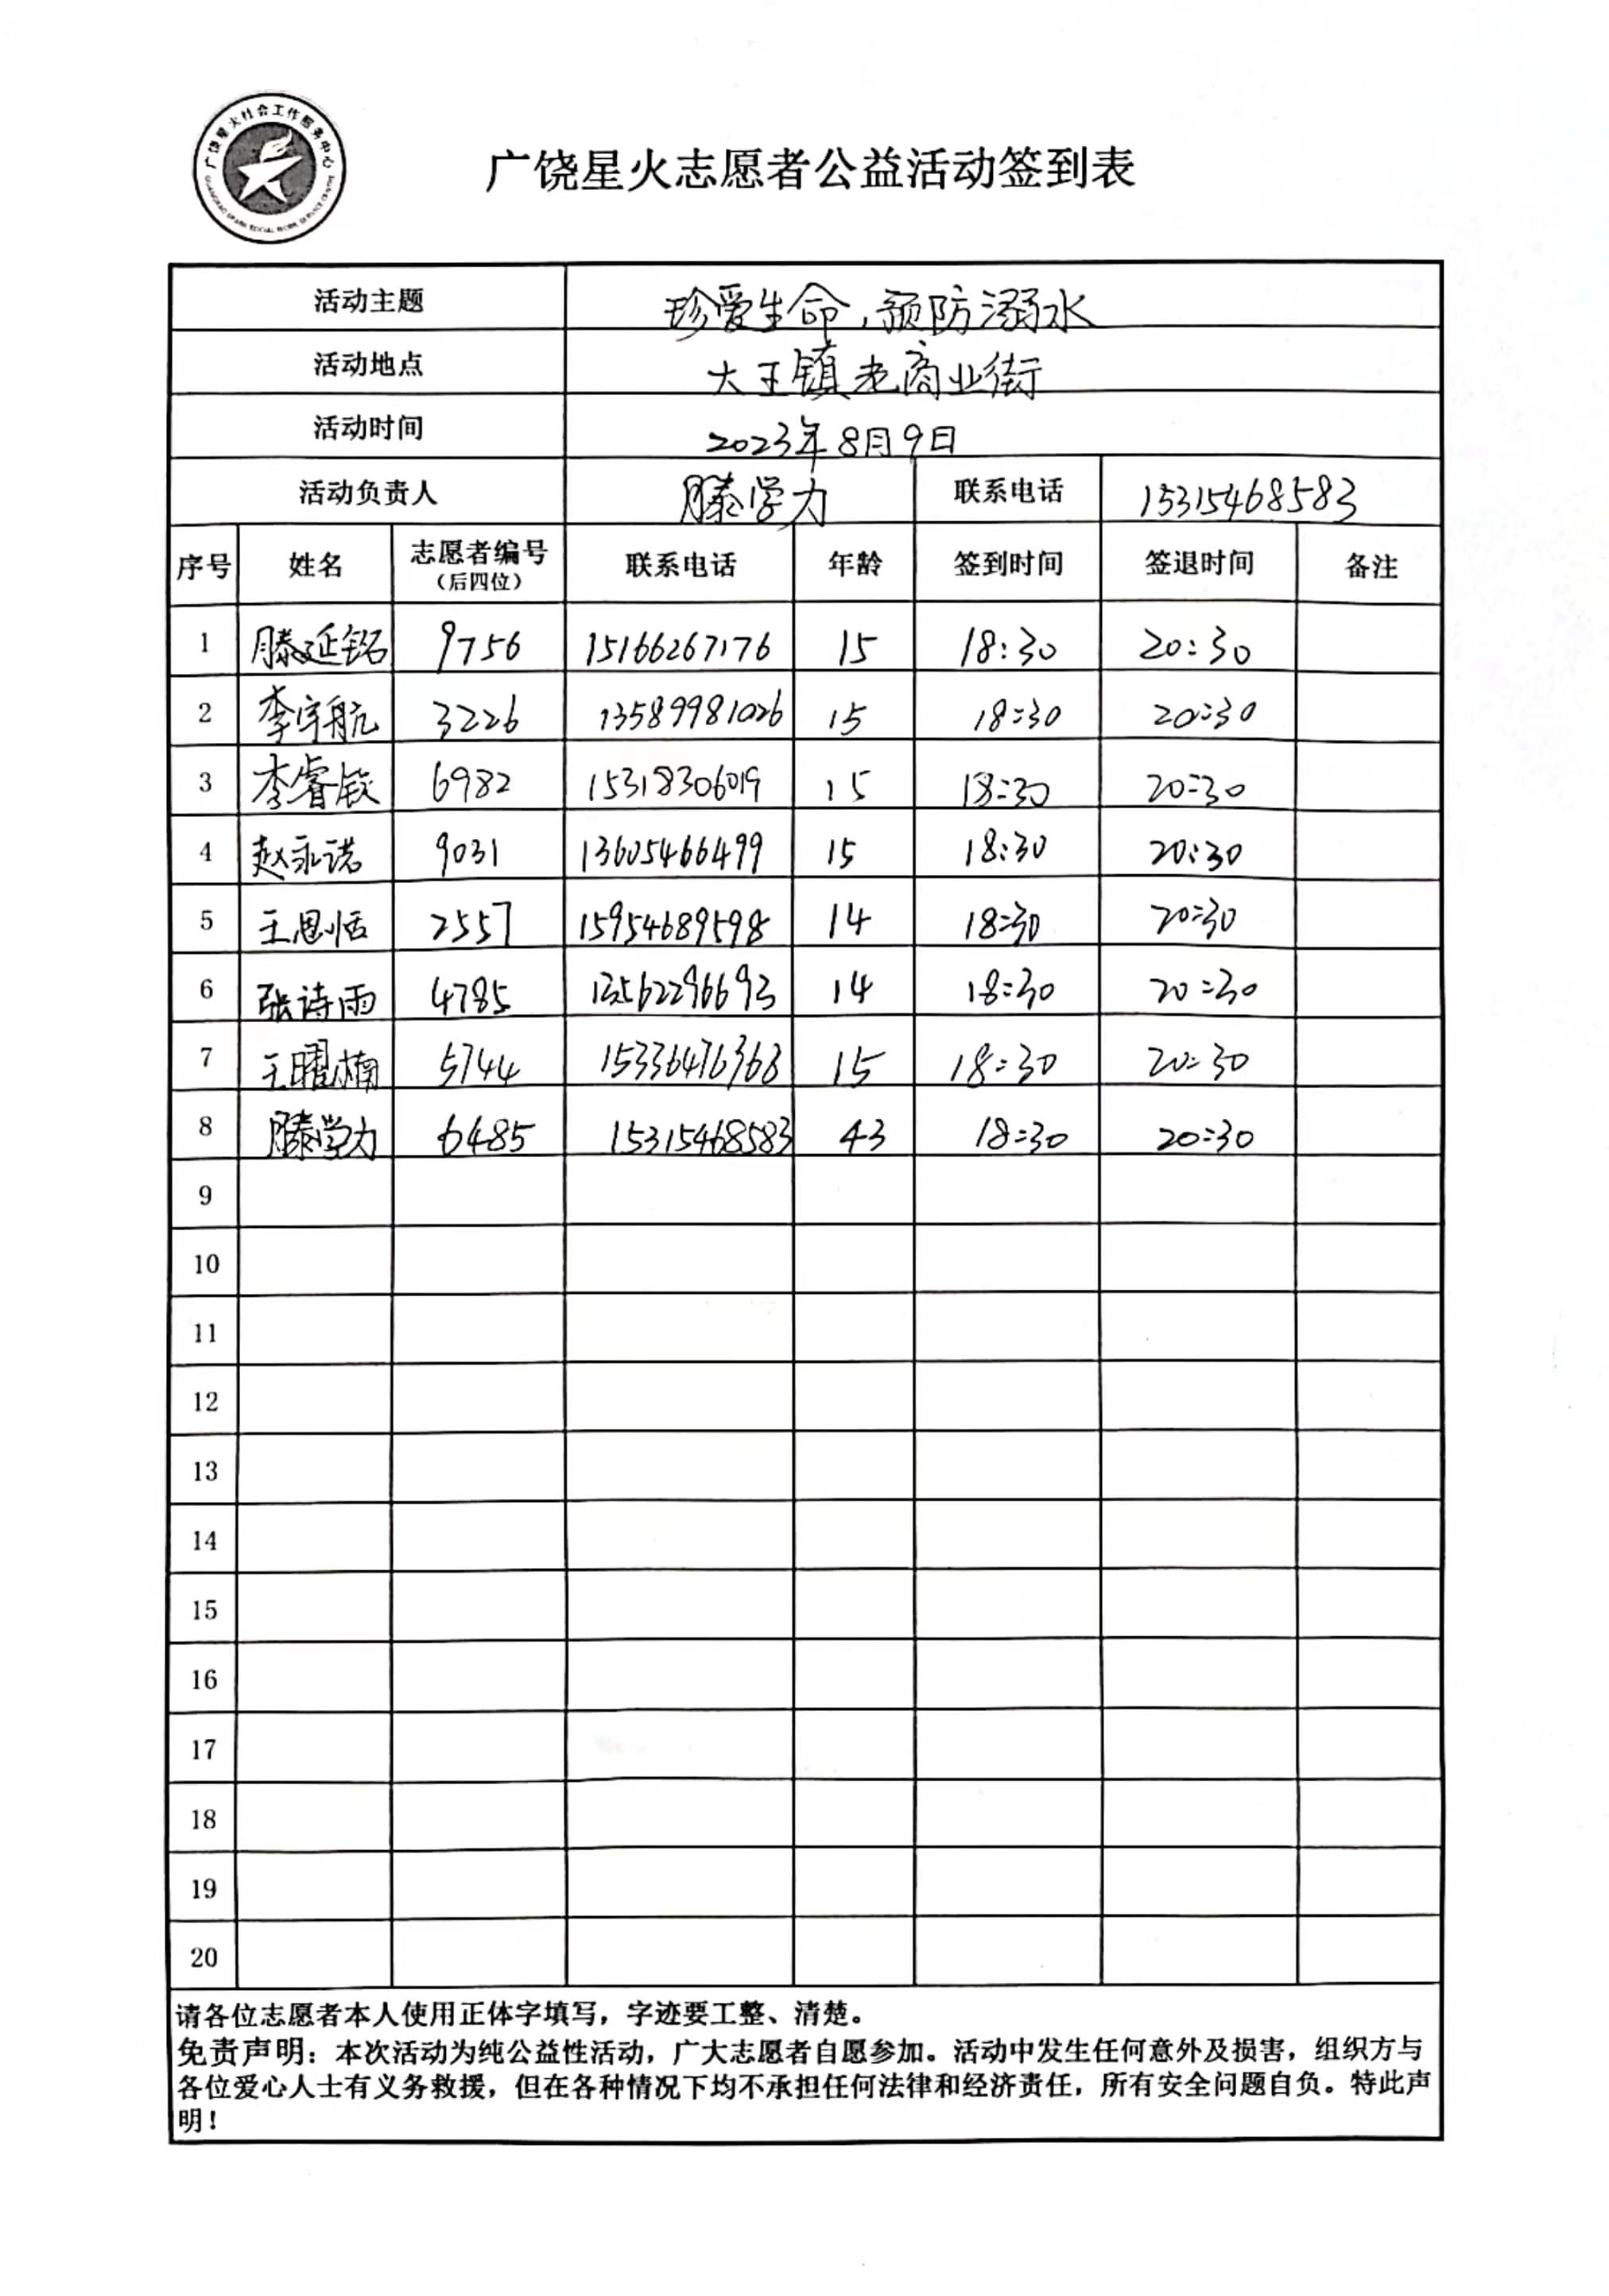 广饶星火社会工作服务中心
广饶星火志愿者公益活动签到表
活动主题 珍爱生命,预防溺水
活动地点 大王镇老商业街
活动时间 2023年8月9日
活动负责人 滕学力 联系电话 15315468583
序号 姓名 志愿者编号(后四位) 联系电话 年龄 签到时间 签退时间 备注
1 滕延铭 9756 15166267176 15 18:30 20:30
2 李宇航 3226 13589981026 15 18:30 20:30
3 李睿 6982 15318306019 15 18:30 20:30
4 赵永诺 9031 13605466499 15 18:30 20:30
5 王恩恬 2557 15954689598 14 18:30 20:30
6 张诗雨 4785 13562296693 14 18:30 20:30
7 王曜楠 5744 15336476368 15 18:30 20:30
8 滕学力 6485 15315468583 43 18:30 20:30
9
10
11
12
13
14
15
16
17
18
19
20
请各位志愿者本人使用正体字填写，字迹要工整、清楚。
免责声明：本次活动为纯公益性活动，广大志愿者自愿参加。活动中发生任何意外及损害，组织方与
各位爱心人士有义务救援，但在各种情况下均不承担任何法律和经济责任，所有安全问题自负。特此声
明！